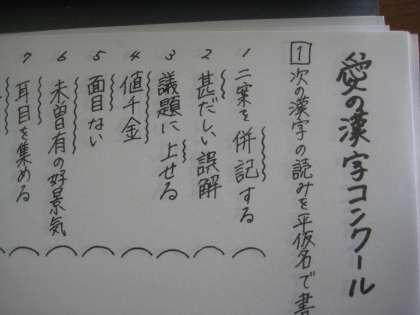 愛の漢字コンクール
1 次の漢字の読みを平仮名で書
1 二案を併記する
2 甚だしい誤解
3 議題に上せる
4 値千金
5 面目ない
6 未曽有の好景気
7 耳目を集める